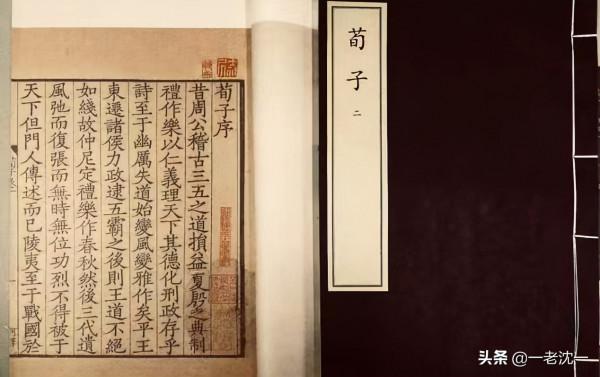 荀子序
昔周公稽古三五之道損益夏殷之典制
禮作樂以仁義理天下其德化刑政存乎
詩至于幽厲失道始變風變雅作矣平王
東遷諸侯力政逮五霸之後則王道不絕
如綫故仲尼定禮樂作春秋然後三代遺
風弛而復張而無時無位功烈不得被于
天下但門人傳述而已陵夷至于戰國於
荀子
二
头条 @一老沈一